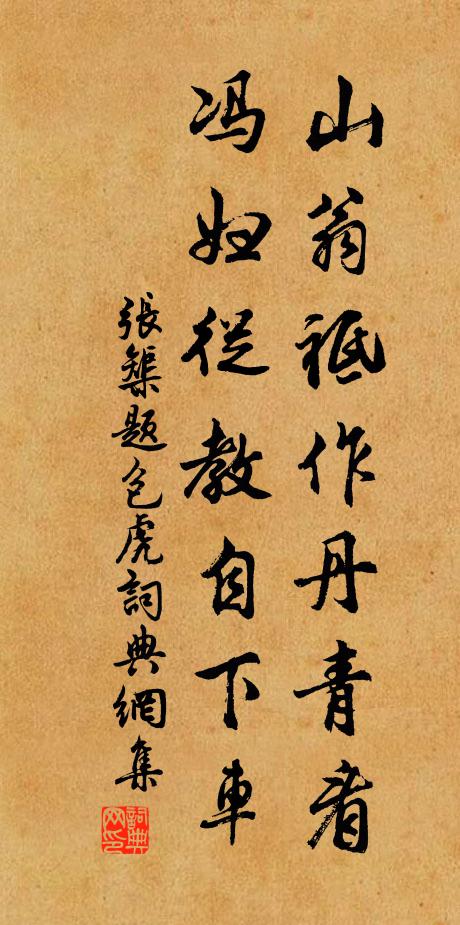 山翁祇作丹青看
冯妇從教自下車
張榘題包虎詞典網集
詞典网印